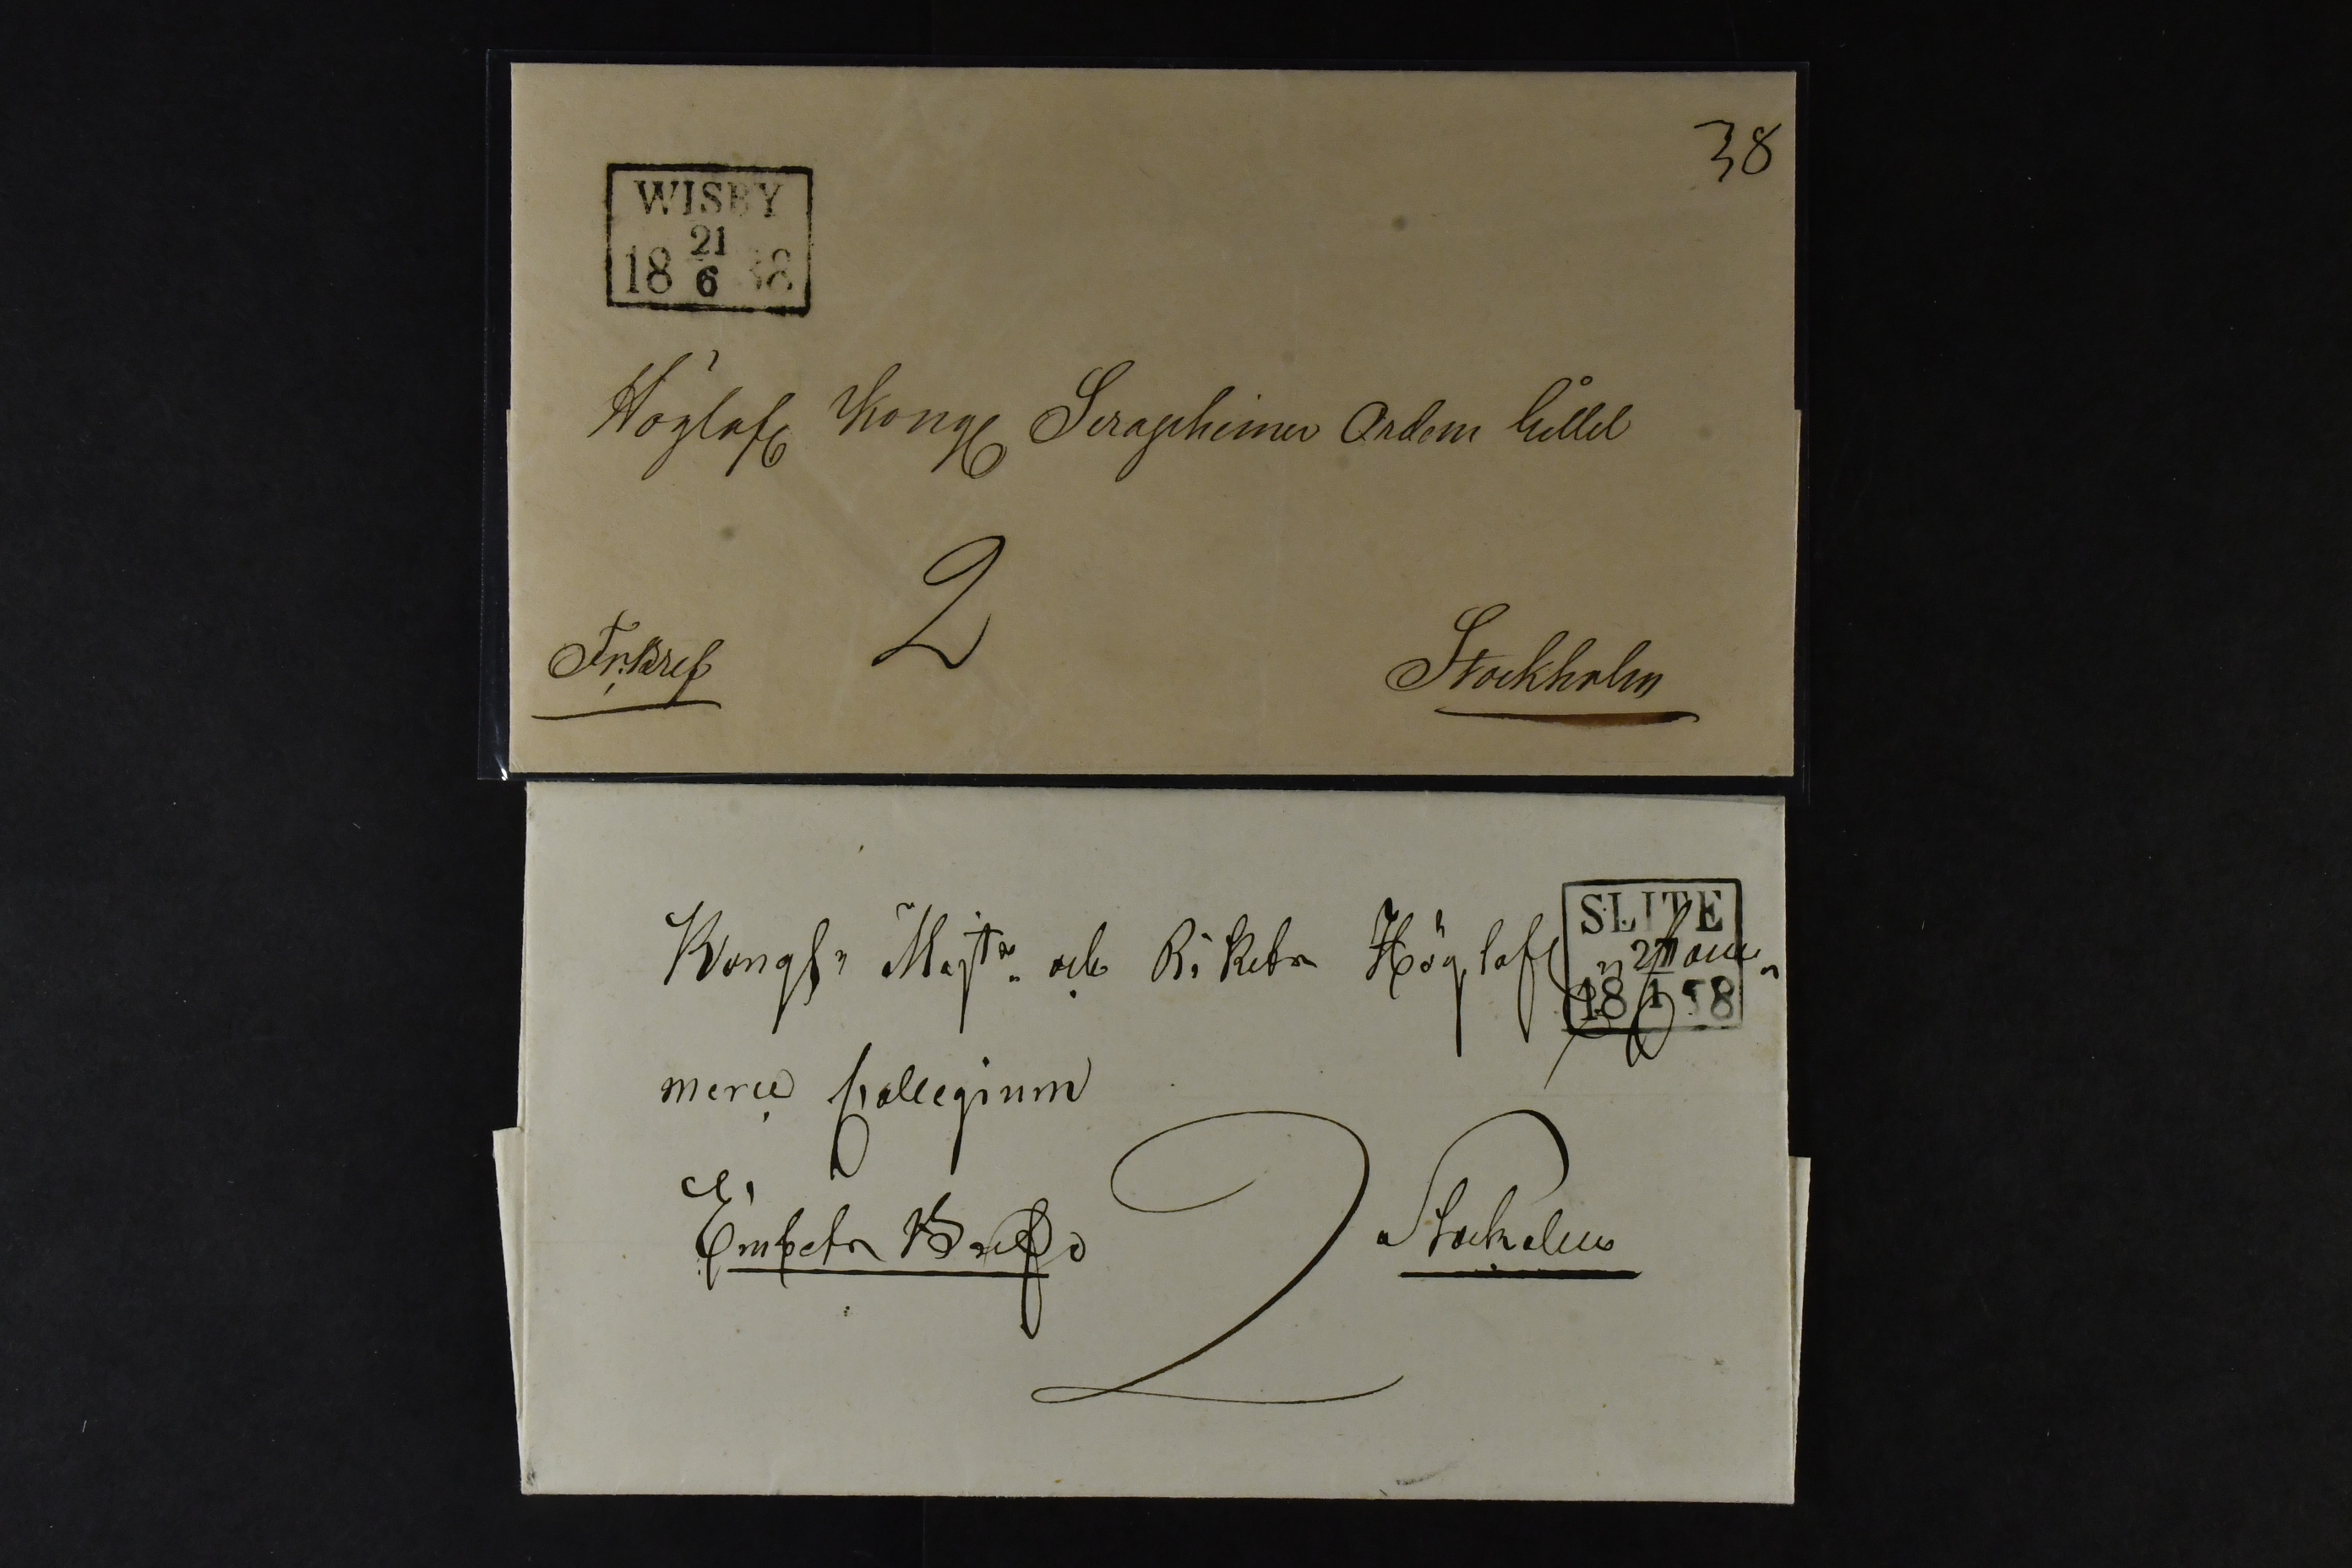 38
WISBY
21
18 6 38
Höglofl Kongl Seraphimer Ordens Gillet
2
Fr.Bref
Stockholm
SLITE
18 1 58
Kongl: Majts och Rikets Höglofl Com-
merce Collegium
2
Embets Bref
Stockholm